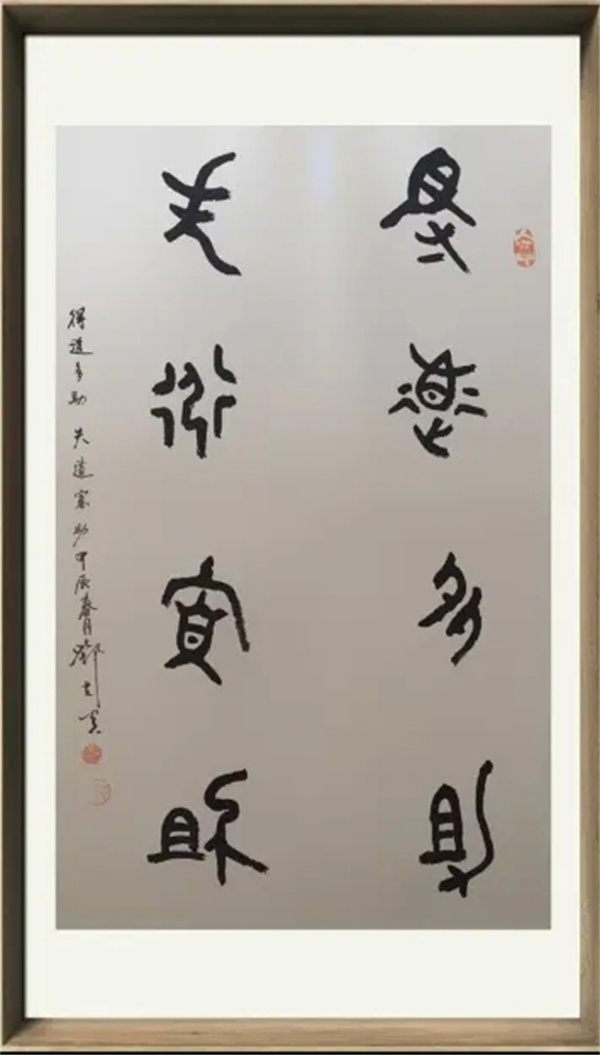 得道多助
失道寡助
得道多助 失道寡助 甲辰春月